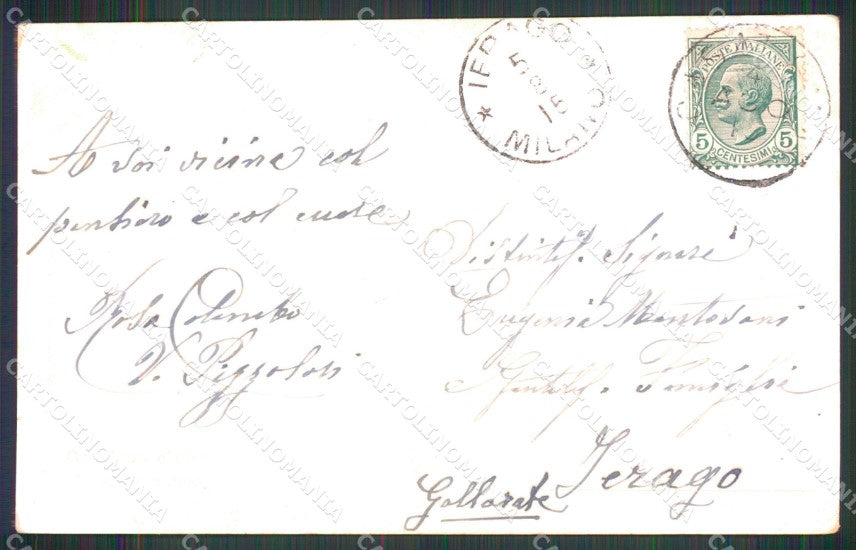 IERAGO
MILANO
15
POSTE ITALIANE
5 5
CENTESIMI
A voi vicina col
pensiero e col cuore
Rosa Colombo
V. Pizzolosi
Distintif. Signore
Eugenia Mantovani
Gentilf. Famiglia
Jerago
Gallarate
CARTOLINOMANIA